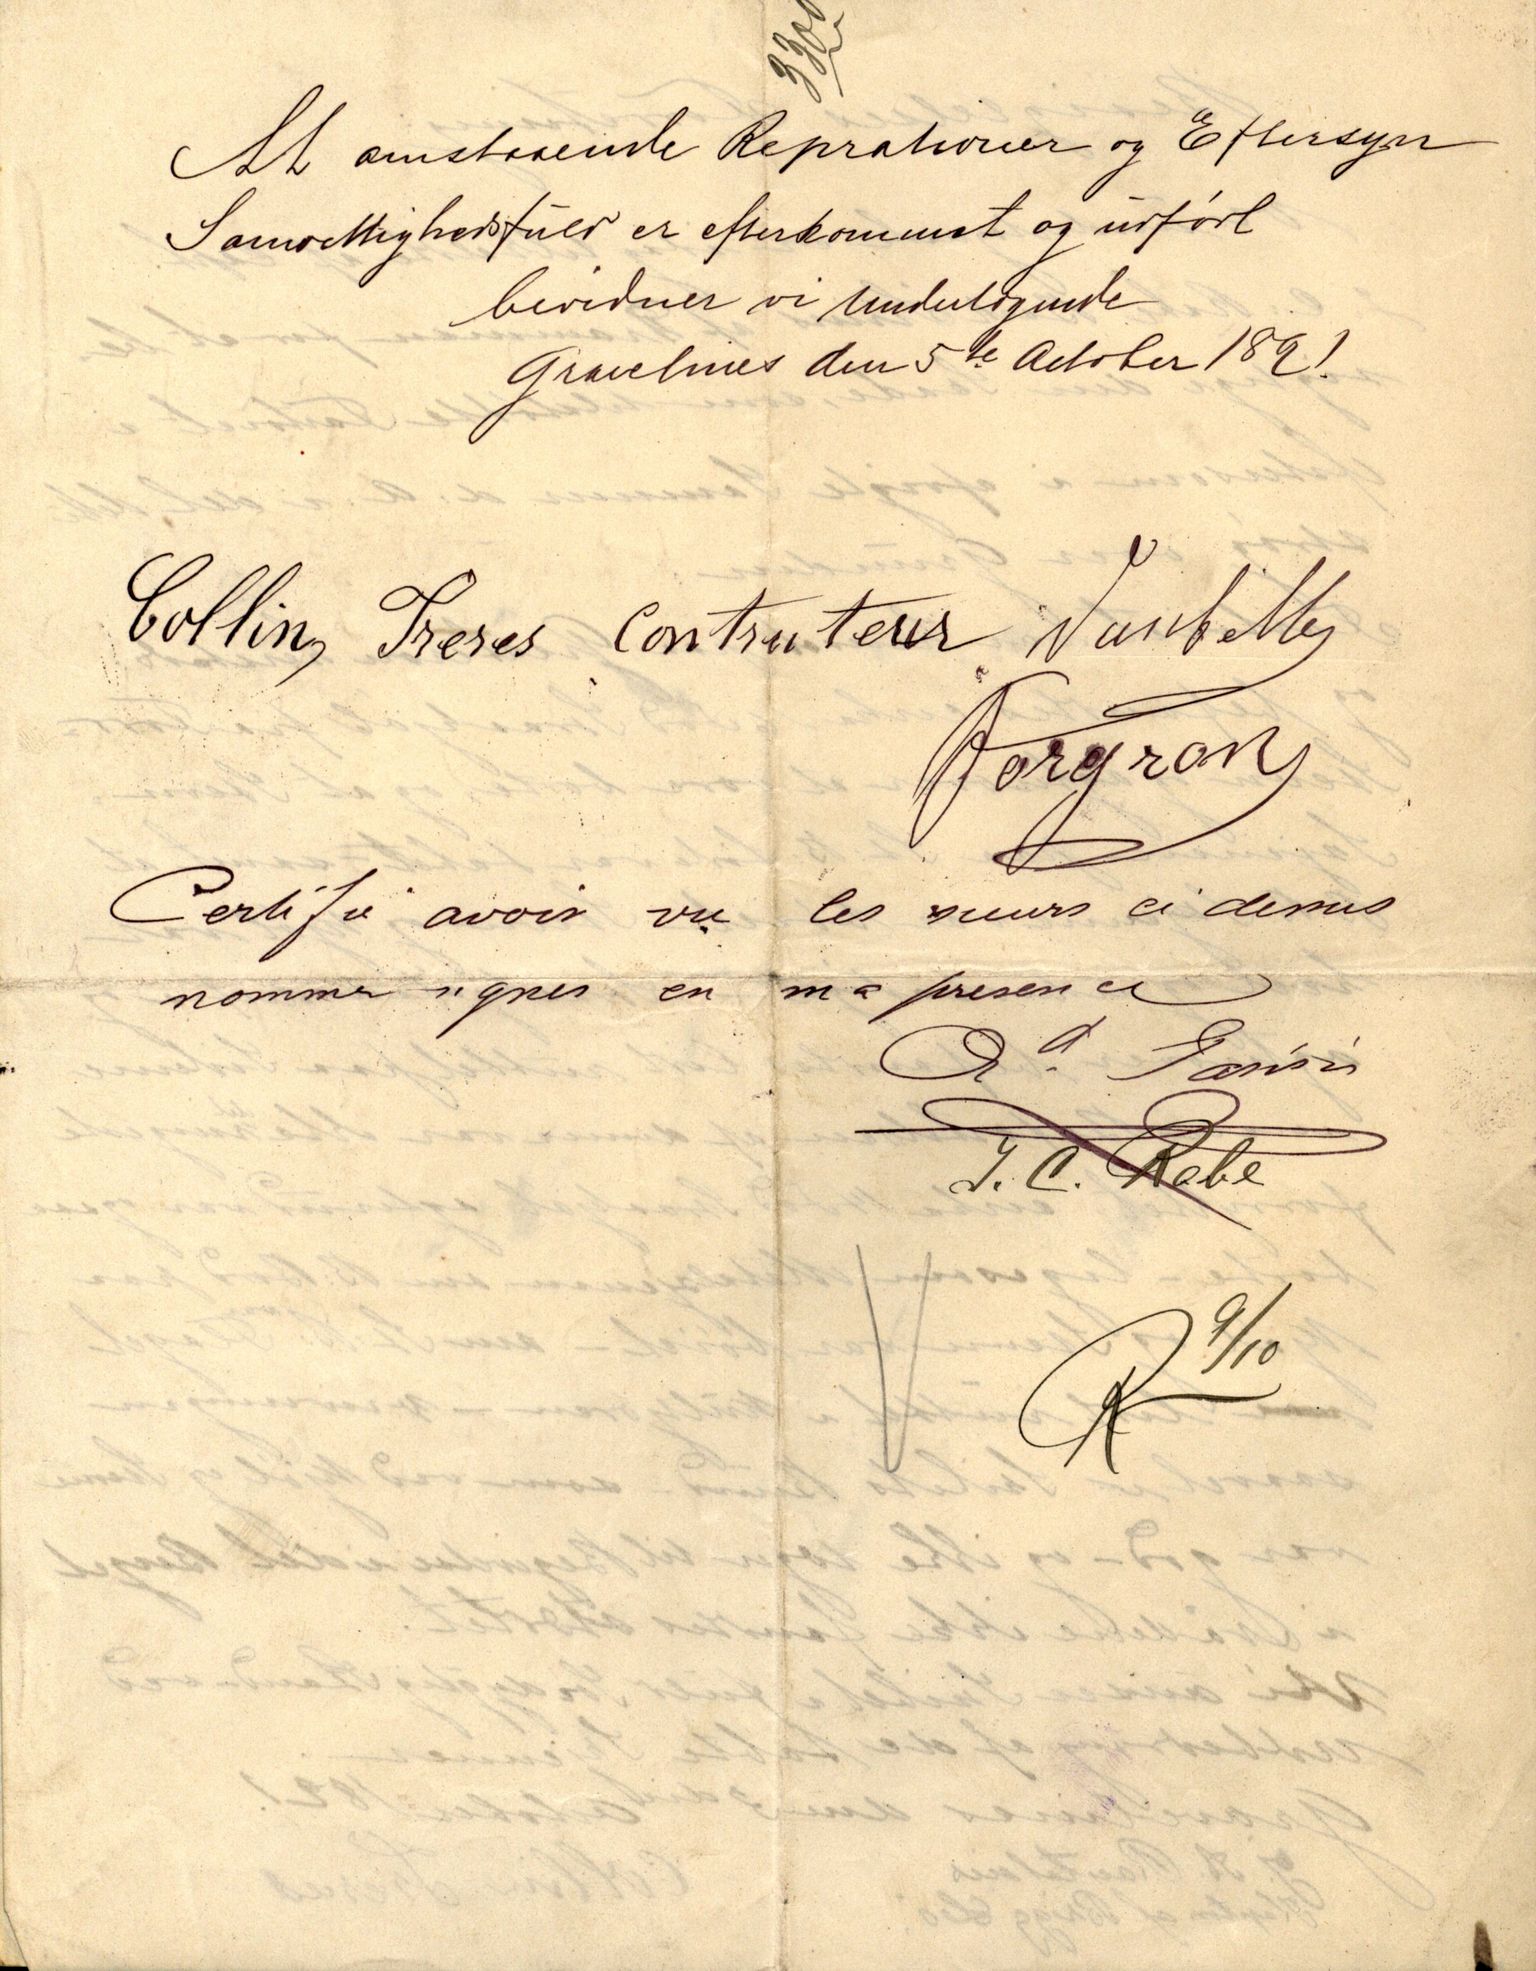 330
At omstaaende Reprationer og Eftersyn
Samvettighedsfuld er efterkommet og udført
bevidner vi Undertegnede
Gravelines den 5te October 1891
Collin Freres Contruterur Vanbille
Forgron
Certifié avoir vu les sieurs ci dessus
nommer signer en ma presence
J. C. Rabe
R 9/10